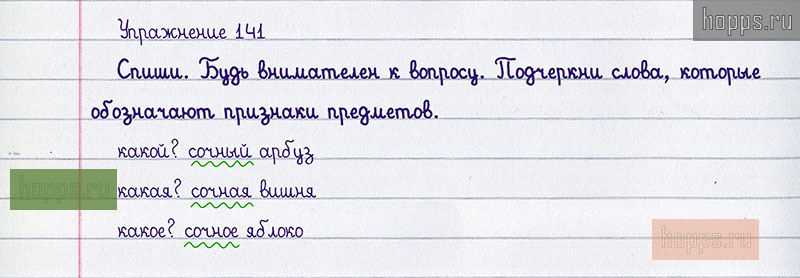 hopps.ru
Упражнение 141
Спиши. Будь внимателен к вопросу. Подчеркни слова, которые
обозначают признаки предметов.
какой? сочный арбуз
hopps.ru
какая? сочная вишня
какое? сочное яблоко
hopps.ru